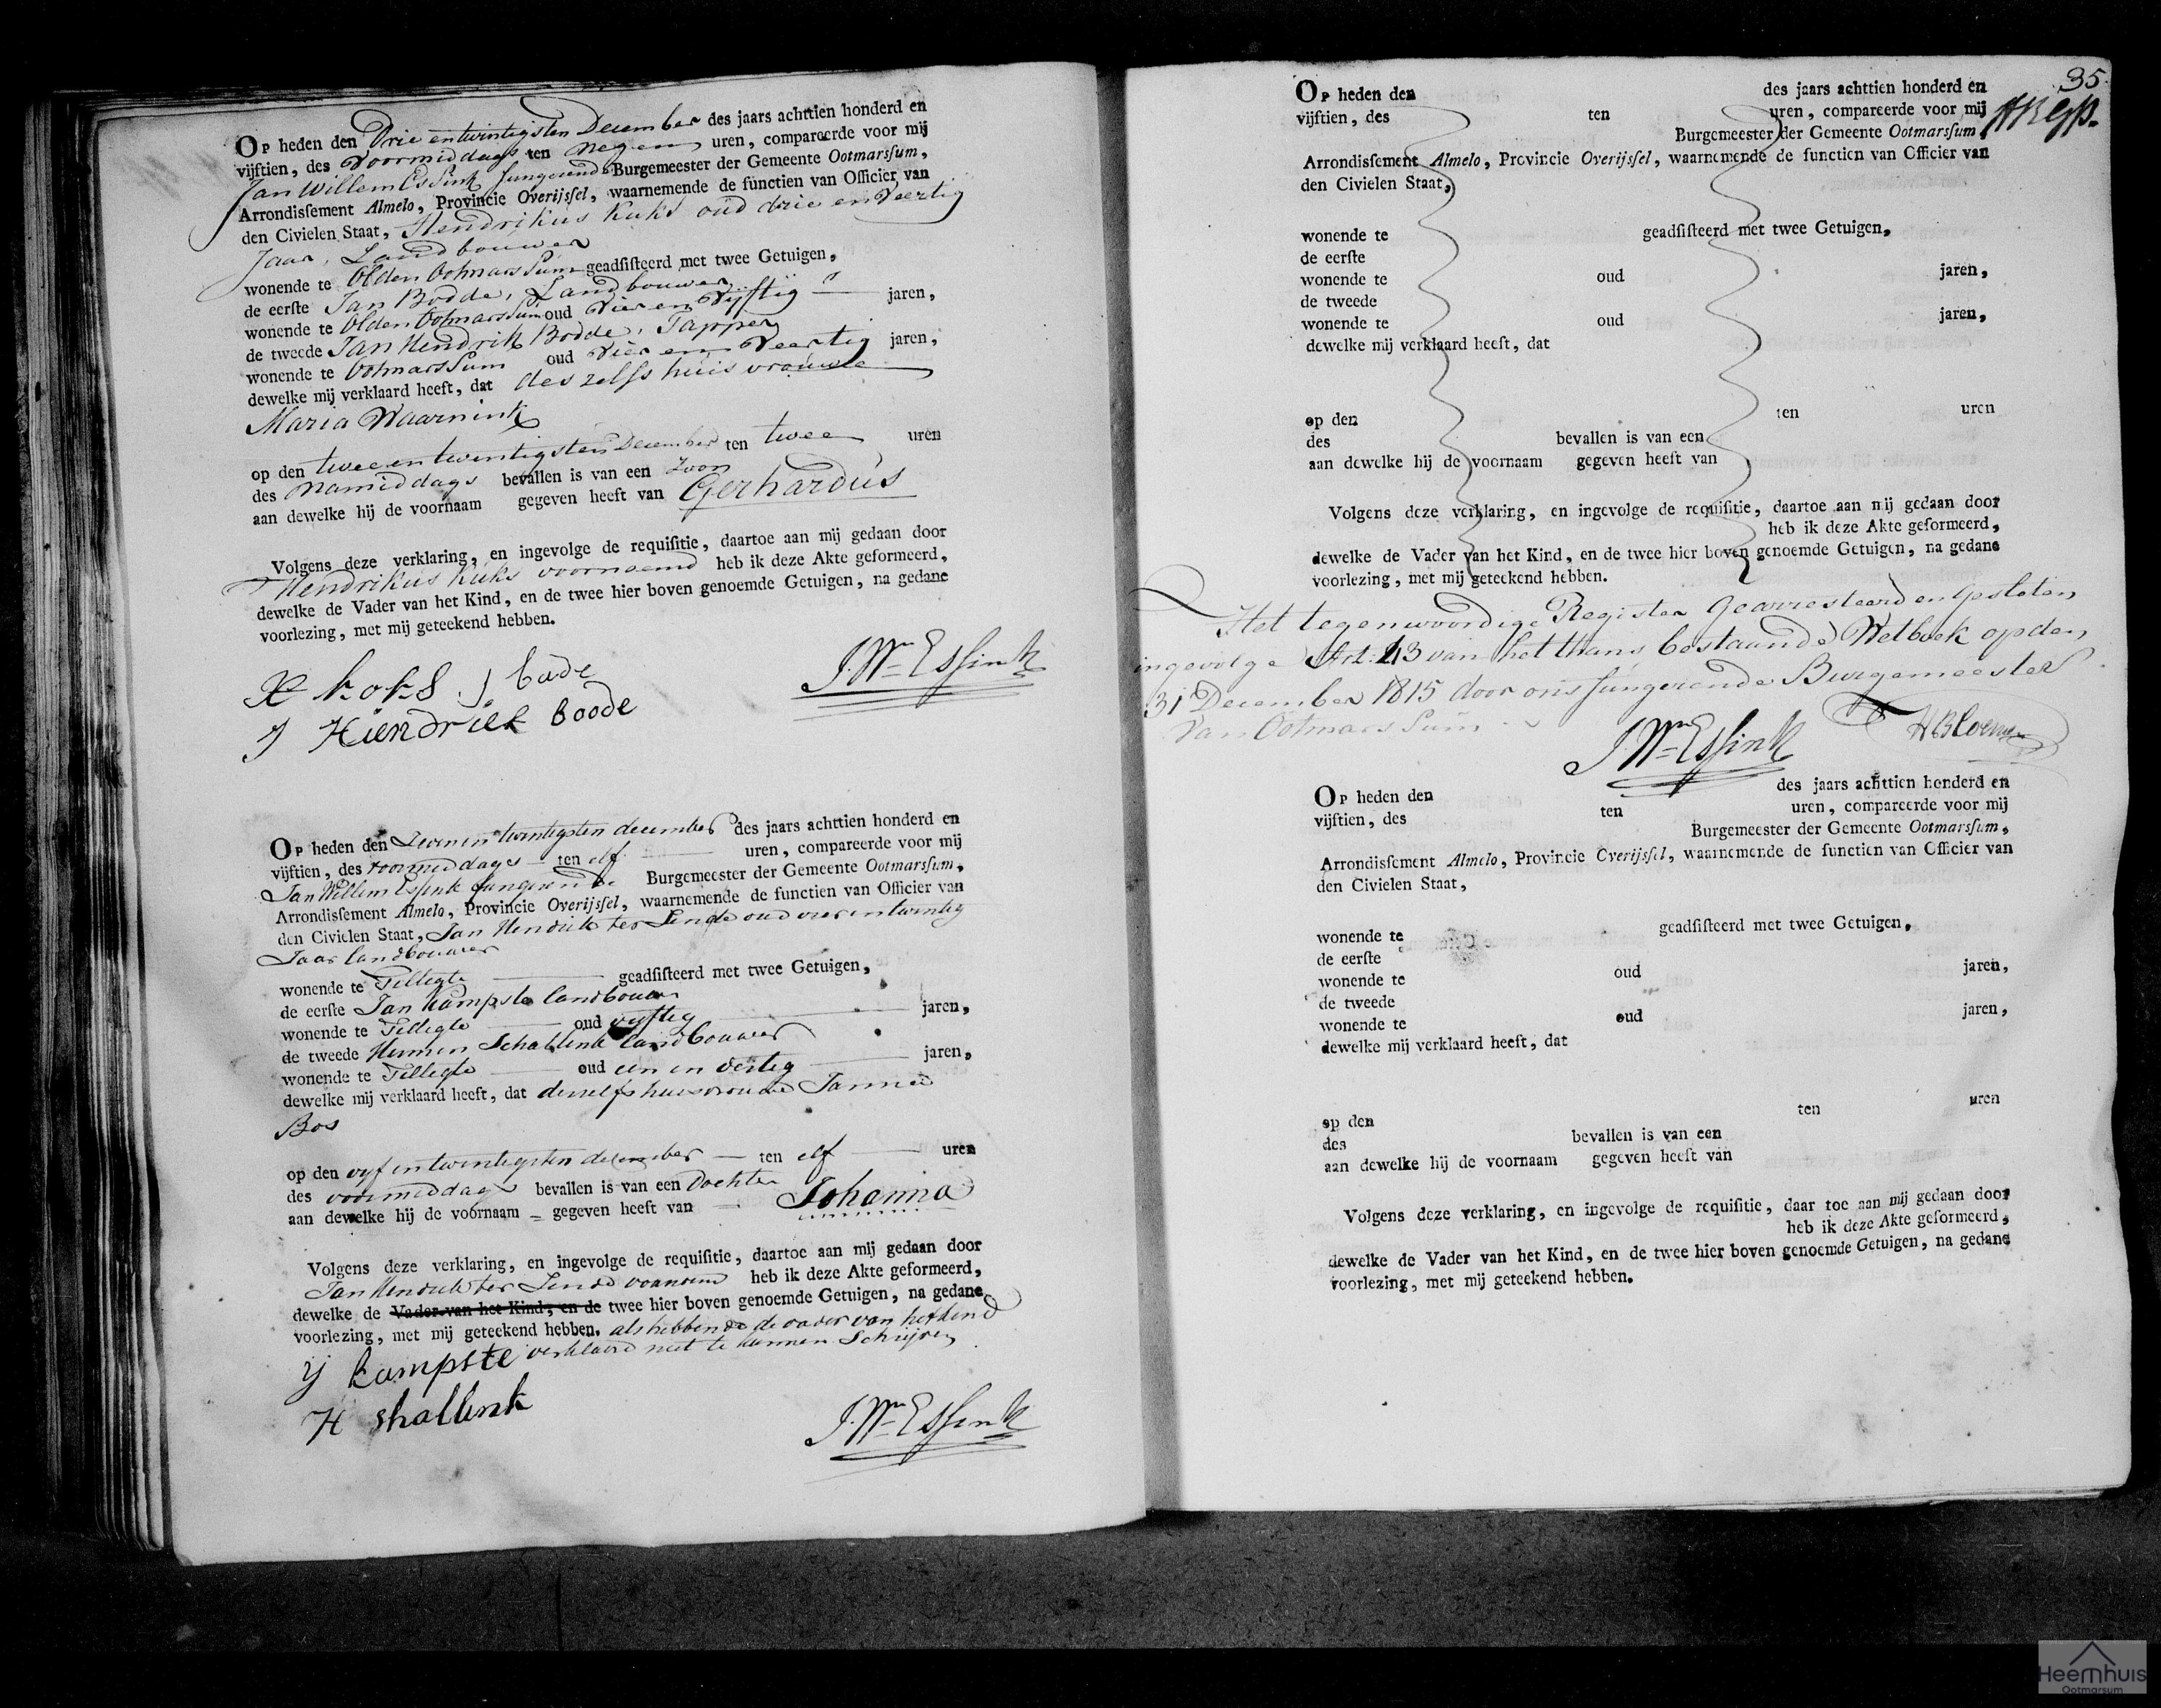 Op heden den Drie en twintigsten December des jaars achttien honderd en
vijftien, des Voormiddags ten Negen uren, compareerde voor mij
Jan Willem Essink fungerende Burgemeester der Gemeente Ootmarssum,
Arrondissement Almelo, Provincie Overijssel, waarnemende de functien van Officier van
den Civielen Staat, Hendrikus Kuks oud drie en Veertig
Jaar, Landbouwer
wonende te Olden Ootmarssum geadsisteerd met twee Getuigen,
de eerste Jan Bodde, Landbouwer
wonende te Olden Ootmarssum oud Vier en Vyftig jaren,
de tweede Jan Hendrik Bodde, Tapper
wonende te Ootmarssum oud Vier en Veertig jaren,
dewelke mij verklaard heeft, dat deszelfs huisvrouwe
Maria Waarnink
op den twee en twintigsten December ten twee uren
des Namiddags bevallen is van een Zoon
aan dewelke hij de voornaam gegeven heeft van Gerhardus
Volgens deze verklaring, en ingevolge de requisitie, daartoe aan mij gedaan door
Hendrikus Kuks voornoemd heb ik deze Akte geformeerd,
dewelke de Vader van het Kind, en de twee hier boven genoemde Getuigen, na gedane
voorlezing, met mij geteekend hebben.
koks j bode
J Hiendriek boode
J. Wm Essink
Op heden den Zeven en twintigsten december des jaars achttien honderd en
vijftien, des voormiddags ten elf uren, compareerde voor mij
Jan Willem Essink fungerende Burgemeester der Gemeente Ootmarssum,
Arrondissement Almelo, Provincie Overijssel, waarnemende de functien van Officier van
den Civielen Staat, Jan Hendrik ter Lende oud vier en twintig
Jaar landbouwer
wonende te Tilligte geadsisteerd met twee Getuigen,
de eerste Jan Kampste landbouwer
wonende te Tilligte oud vyftig jaren,
de tweede Hermen Schallenk landbouwer
wonende te Tilligte oud een en dertig jaren,
dewelke mij verklaard heeft, dat deszelfs huisvrouwe Janna
Bos
op den vyf en twintigsten december ten elf uren
des voormiddags bevallen is van een Dochter
aan dewelke hij de voornaam gegeven heeft van Johanna
Volgens deze verklaring, en ingevolge de requisitie, daartoe aan mij gedaan door
Jan Hendrik ter Lende voornoemd heb ik deze Akte geformeerd,
dewelke de Vader van het Kind, en de twee hier boven genoemde Getuigen, na gedane
voorlezing, met mij geteekend hebben. als hebbende de vader van het kind
verklaard niet te kunnen Schryven
J kampste
H shallenk
J. Wm Essink
35.
Op heden den des jaars achttien honderd en
vijftien, des ten uren, compareerde voor mij
Burgemeester der Gemeente Ootmarssum,
Arrondissement Almelo, Provincie Overijssel, waarnemende de functien van Officier van
den Civielen Staat,
wonende te geadsisteerd met twee Getuigen,
de eerste
wonende te oud jaren,
de tweede
wonende te oud jaren,
dewelke mij verklaard heeft, dat
op den ten uren
des bevallen is van een
aan dewelke hij de voornaam gegeven heeft van
Volgens deze verklaring, en ingevolge de requisitie, daartoe aan mij gedaan door
heb ik deze Akte geformeerd,
dewelke de Vader van het Kind, en de twee hier boven genoemde Getuigen, na gedane
voorlezing, met mij geteekend hebben.
Het tegenwoordige Register Gearresteerd en Gesloten
ingevolge Art: 43 van het thans bestaande Wetboek op den
31 December 1815 door ons fungerende Burgemeester
Van Ootmarssum
J Wm Essink
Op heden den des jaars achttien honderd en
vijftien, des ten uren, compareerde voor mij
Burgemeester der Gemeente Ootmarssum,
Arrondissement Almelo, Provincie Overijssel, waarnemende de functien van Officier van
den Civielen Staat,
wonende te geadsisteerd met twee Getuigen,
de eerste
wonende te oud jaren,
de tweede
wonende te oud jaren,
dewelke mij verklaard heeft, dat
op den ten uren
des bevallen is van een
aan dewelke hij de voornaam gegeven heeft van
Volgens deze verklaring, en ingevolge de requisitie, daar toe aan mij gedaan door
heb ik deze Akte geformeerd,
dewelke de Vader van het Kind, en de twee hier boven genoemde Getuigen, na gedane
voorlezing, met mij geteekend hebben.
Heemhuis
Ootmarsum